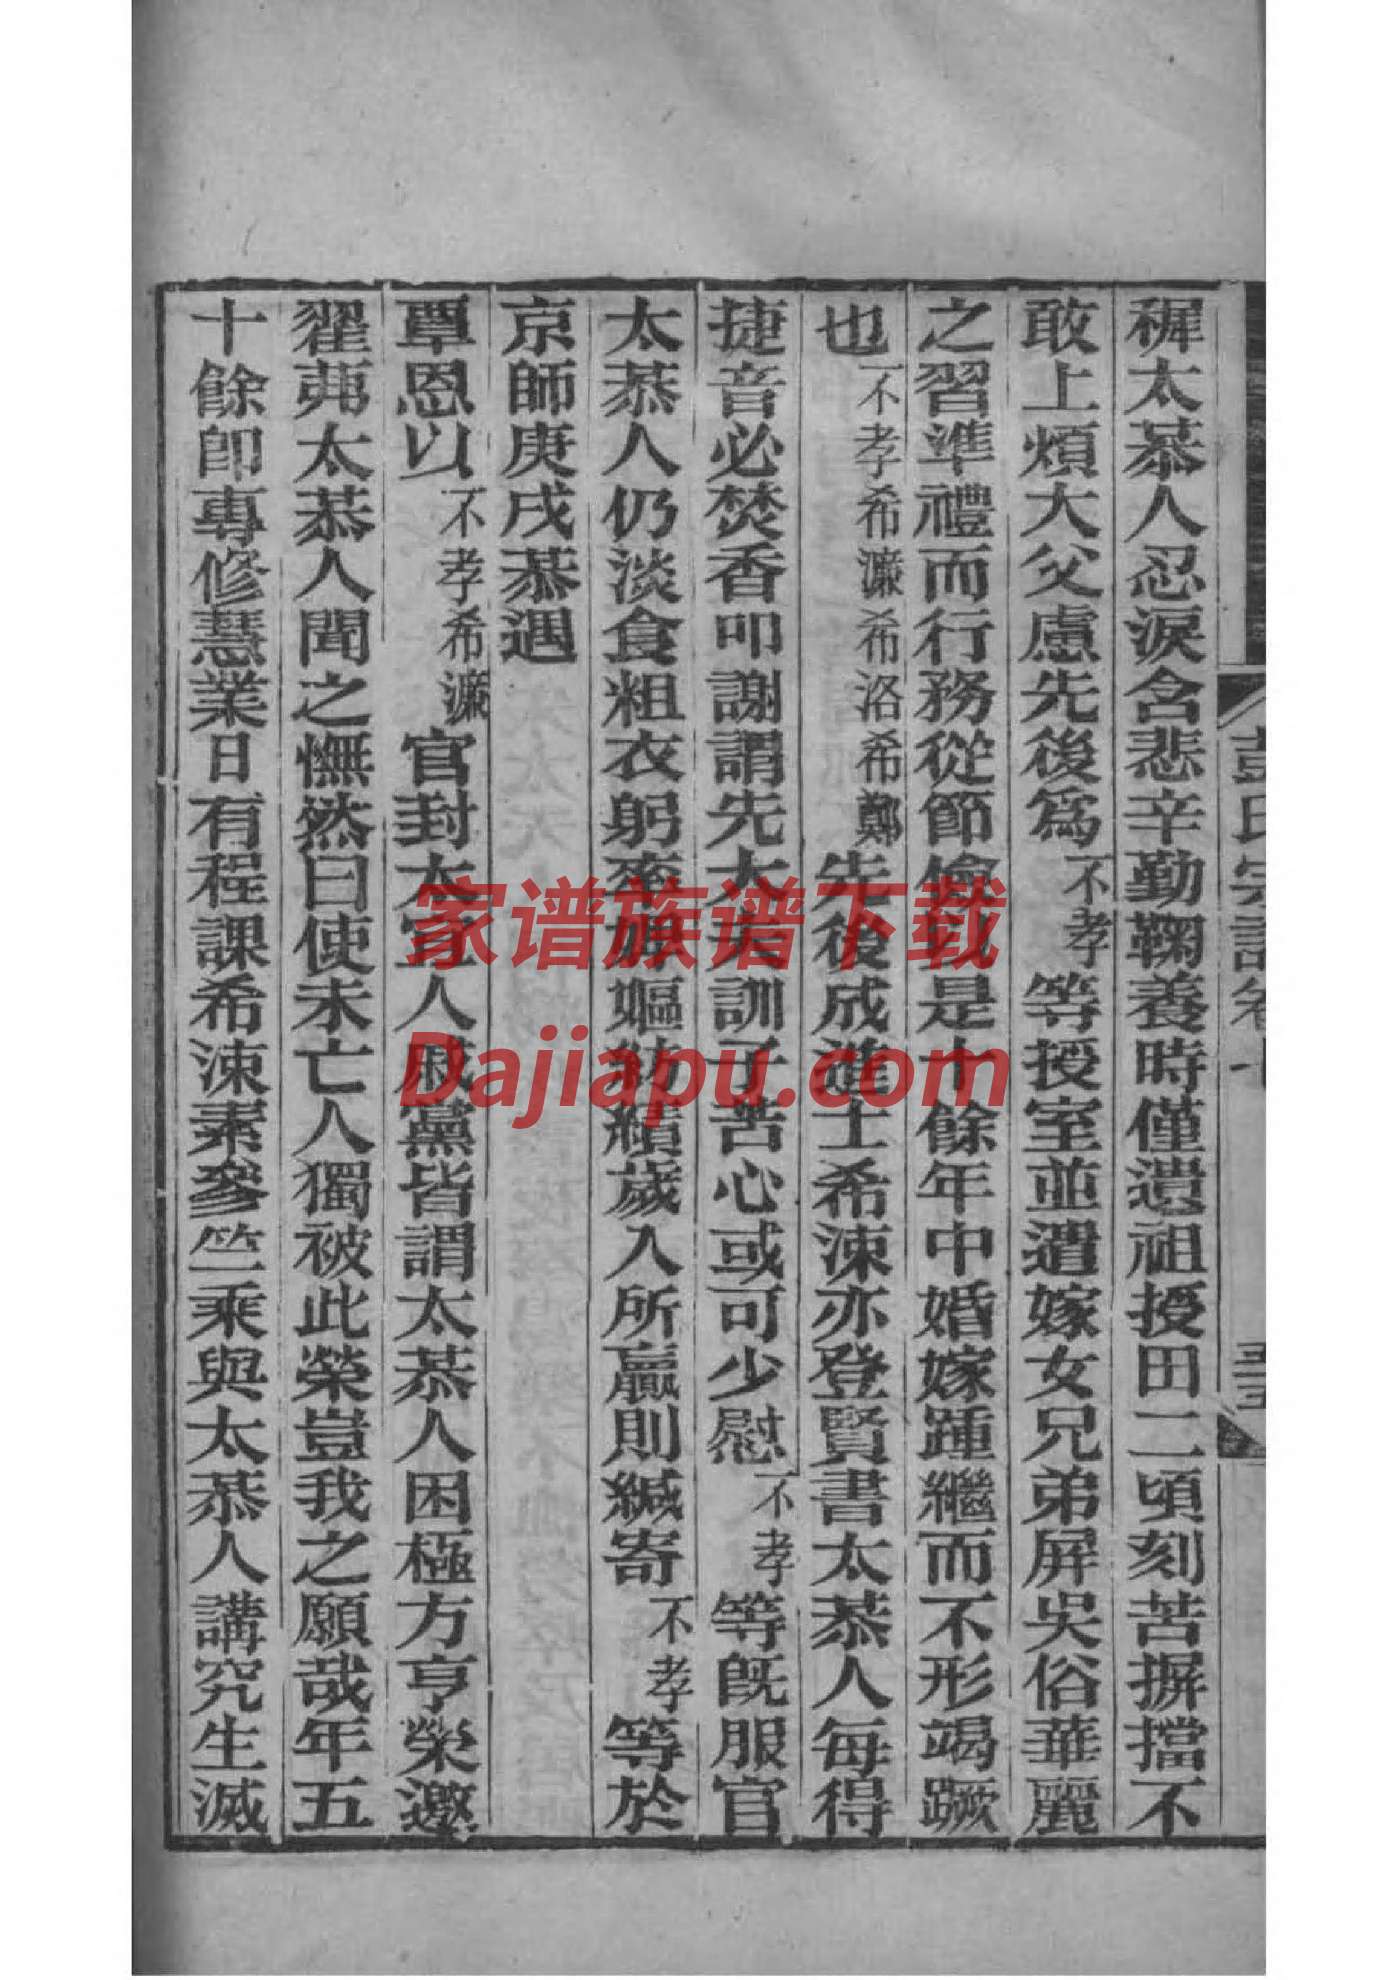 穉太恭人忍淚含悲辛勤鞠養時僅遺祖授田二頃刻苦摒擋不
敢上煩大父慮先後爲不孝等授室並遣嫁女兄弟屏吳俗華麗
之習準禮而行務從節儉以是十餘年中婚嫁踵繼而不形竭蹶
也不孝希濂希洛希鄭先後成進士希涑亦登賢書太恭人每得
捷音必焚香叩謝謂先大夫訓子苦心或可少慰不孝等既服官
太恭人仍淡食粗衣躬率婢嫗紡績歲入所贏則緘寄不孝等於
京師庚戌恭遇
覃恩以不孝希濂官封太宜人戚黨皆謂太恭人困極方亨榮邀
翟茀太恭人聞之憮然曰使未亡人獨被此榮豈我之願哉年五
十餘即專修慧業日有程課希涑素參竺乘與太恭人講究生滅
彭氏宗譜卷十
五五
家谱族谱下载
Dajiapu.com